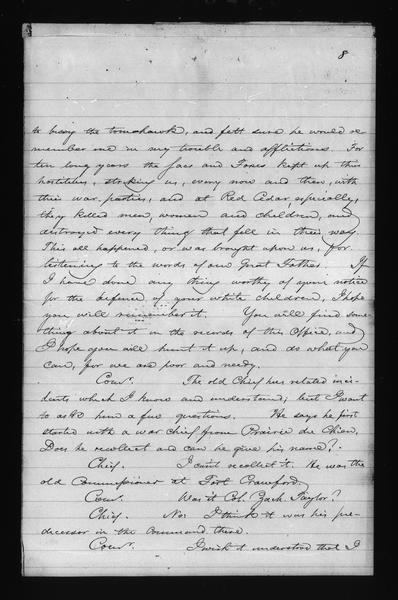 8
to bury the tomahawk, and felt sure he would re
member me in my trouble and afflictions. For
ten long years the Sacs and Foxes kept up their
hostilities, striking us, every now and then, with
their war parties, and at Red Cedar especially,
they killed men, women and children, and
destroyed every thing that fell in their way.
This all happened, or was brought upon us, for
listening to the words of our Great Father. If
I have done any thing worthy of your notice
for the defence of your white children, I hope
you will remember it. You will find some-
thing about it in the records of this Office, and
I hope you will hunt it up, and do what you
can, for we are poor and needy.
Comr. The old Chief has related inci-
dents which I know and understand; but I want
to ask him a few questions. He says he first
started with a war chief from Prairie du Chien.
Does he recollect and can he give his name?
Chief. I can't recollect it. He was the
old Commissioner at Fort Crawford.
Comr. Was it Col. Zach Taylor?
Chief. No: I think it was his pre-
decessor in the command there.
Comr. I wish it understood that I